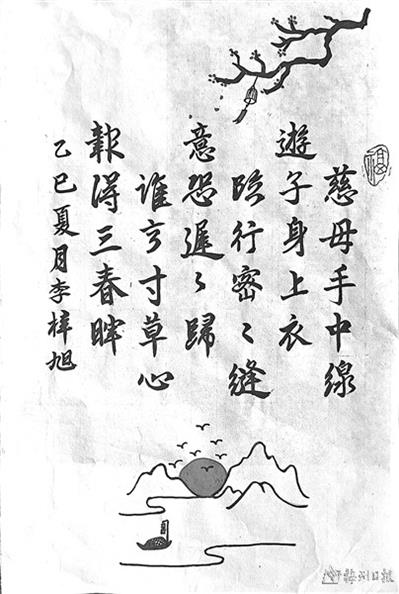 慈母手中線
遊子身上衣
臨行密々縫
意恐遲々歸
誰言寸草心
報得三春暉
乙巳夏月李梓旭